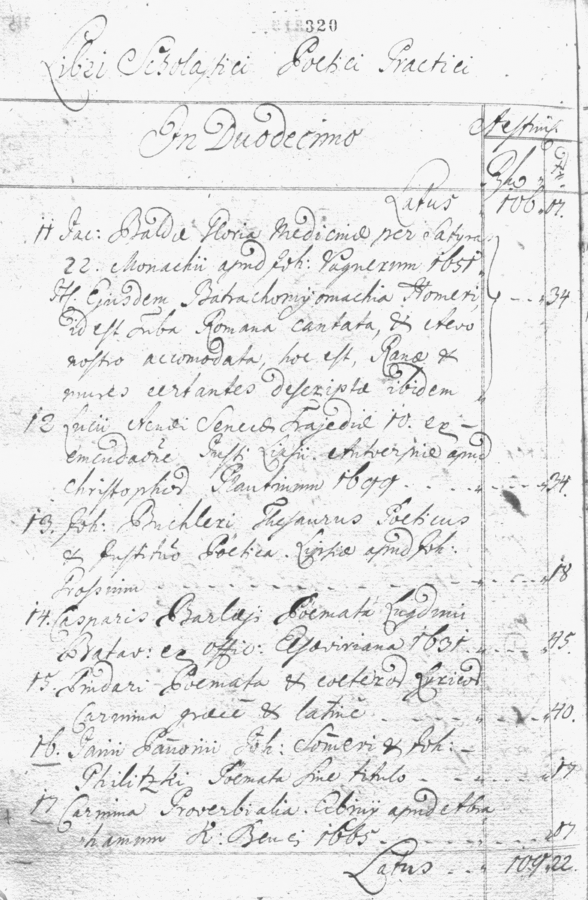 320
Libri Scholastici Poetici Practici
In Duodecimo
Aestim.
Latus 106. 17.
11 Jac: Baldae Gloria Medicinae per Satyras
22. Monachii apud Joh: Vagnerum 1651
It. Ejusdem Batrachomyomachia Homeri, 34
id est Tuba Romana cantata, & Aevo
nostro accomodata, hoc est, Ranae &
mures certantes descriptae ibidem
12 Lucii Annaei Senecae Trajediae 10. ex
emendaōne Justi Lipsii. Antverpiae apud
Christophor Plantinum 1699 34.
13. Joh: Buchleri Thesaurus Poeticus
& Institutio Poetica. Lipsiae apud Joh:
Grossium 18
14. Casparis Barlaeji Poemata Lugduni
Batav: ex offic: Elseviriana 1631. 45.
15. Pindari Poemata & coeteror Lyricor
Carmina graecè & latinè 40.
16. Jani Pañonii Joh: Someri & Joh:
Philitzki Poemata sine titulo 17
17 Carmina Proverbialia. Cibiny apud Abra
hamum K: Benci 1665 07
Latus 109. 22.